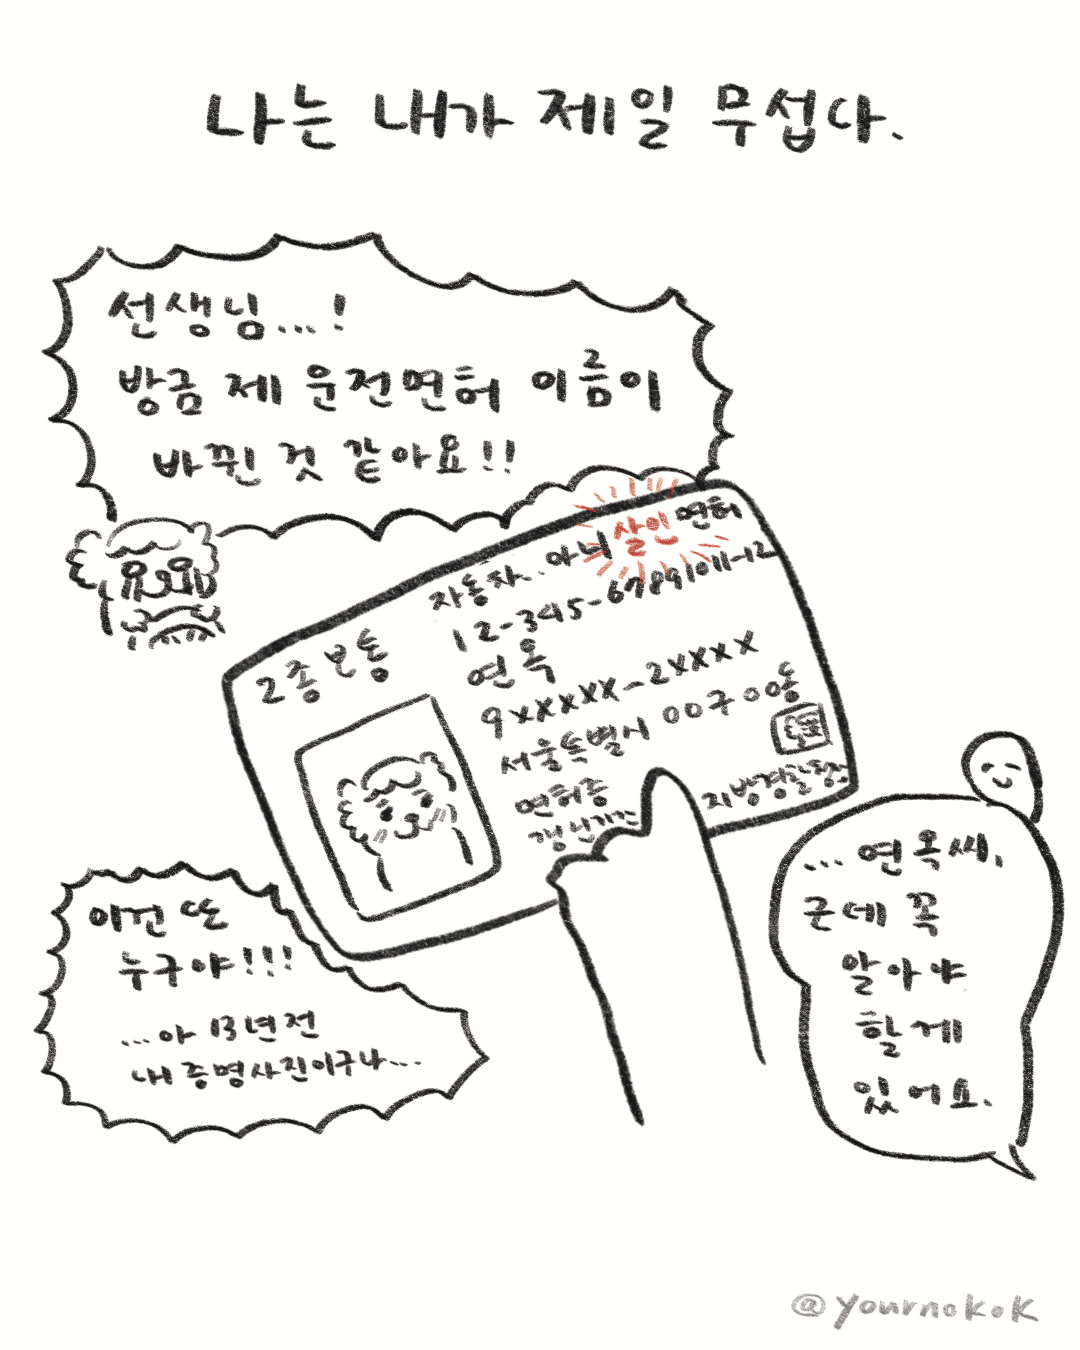 나는 내가 제일 무섭다.
선생님...!
방금 제 운전면허 이름이
바뀐 것 같아요!!
자동차.. 아니 살인 면허
2종 보통
12-345-67891011-12
연옥
9xxxxx-2xxxx
서울특별시 00구 00동
면허증
갱신기간
지방경찰청장
이건 또
누구야!!!
...아 13년 전
내 증명사진이구나...
... 연옥씨,
근데 꼭
알아야
할 게
있어요.
@yournokok